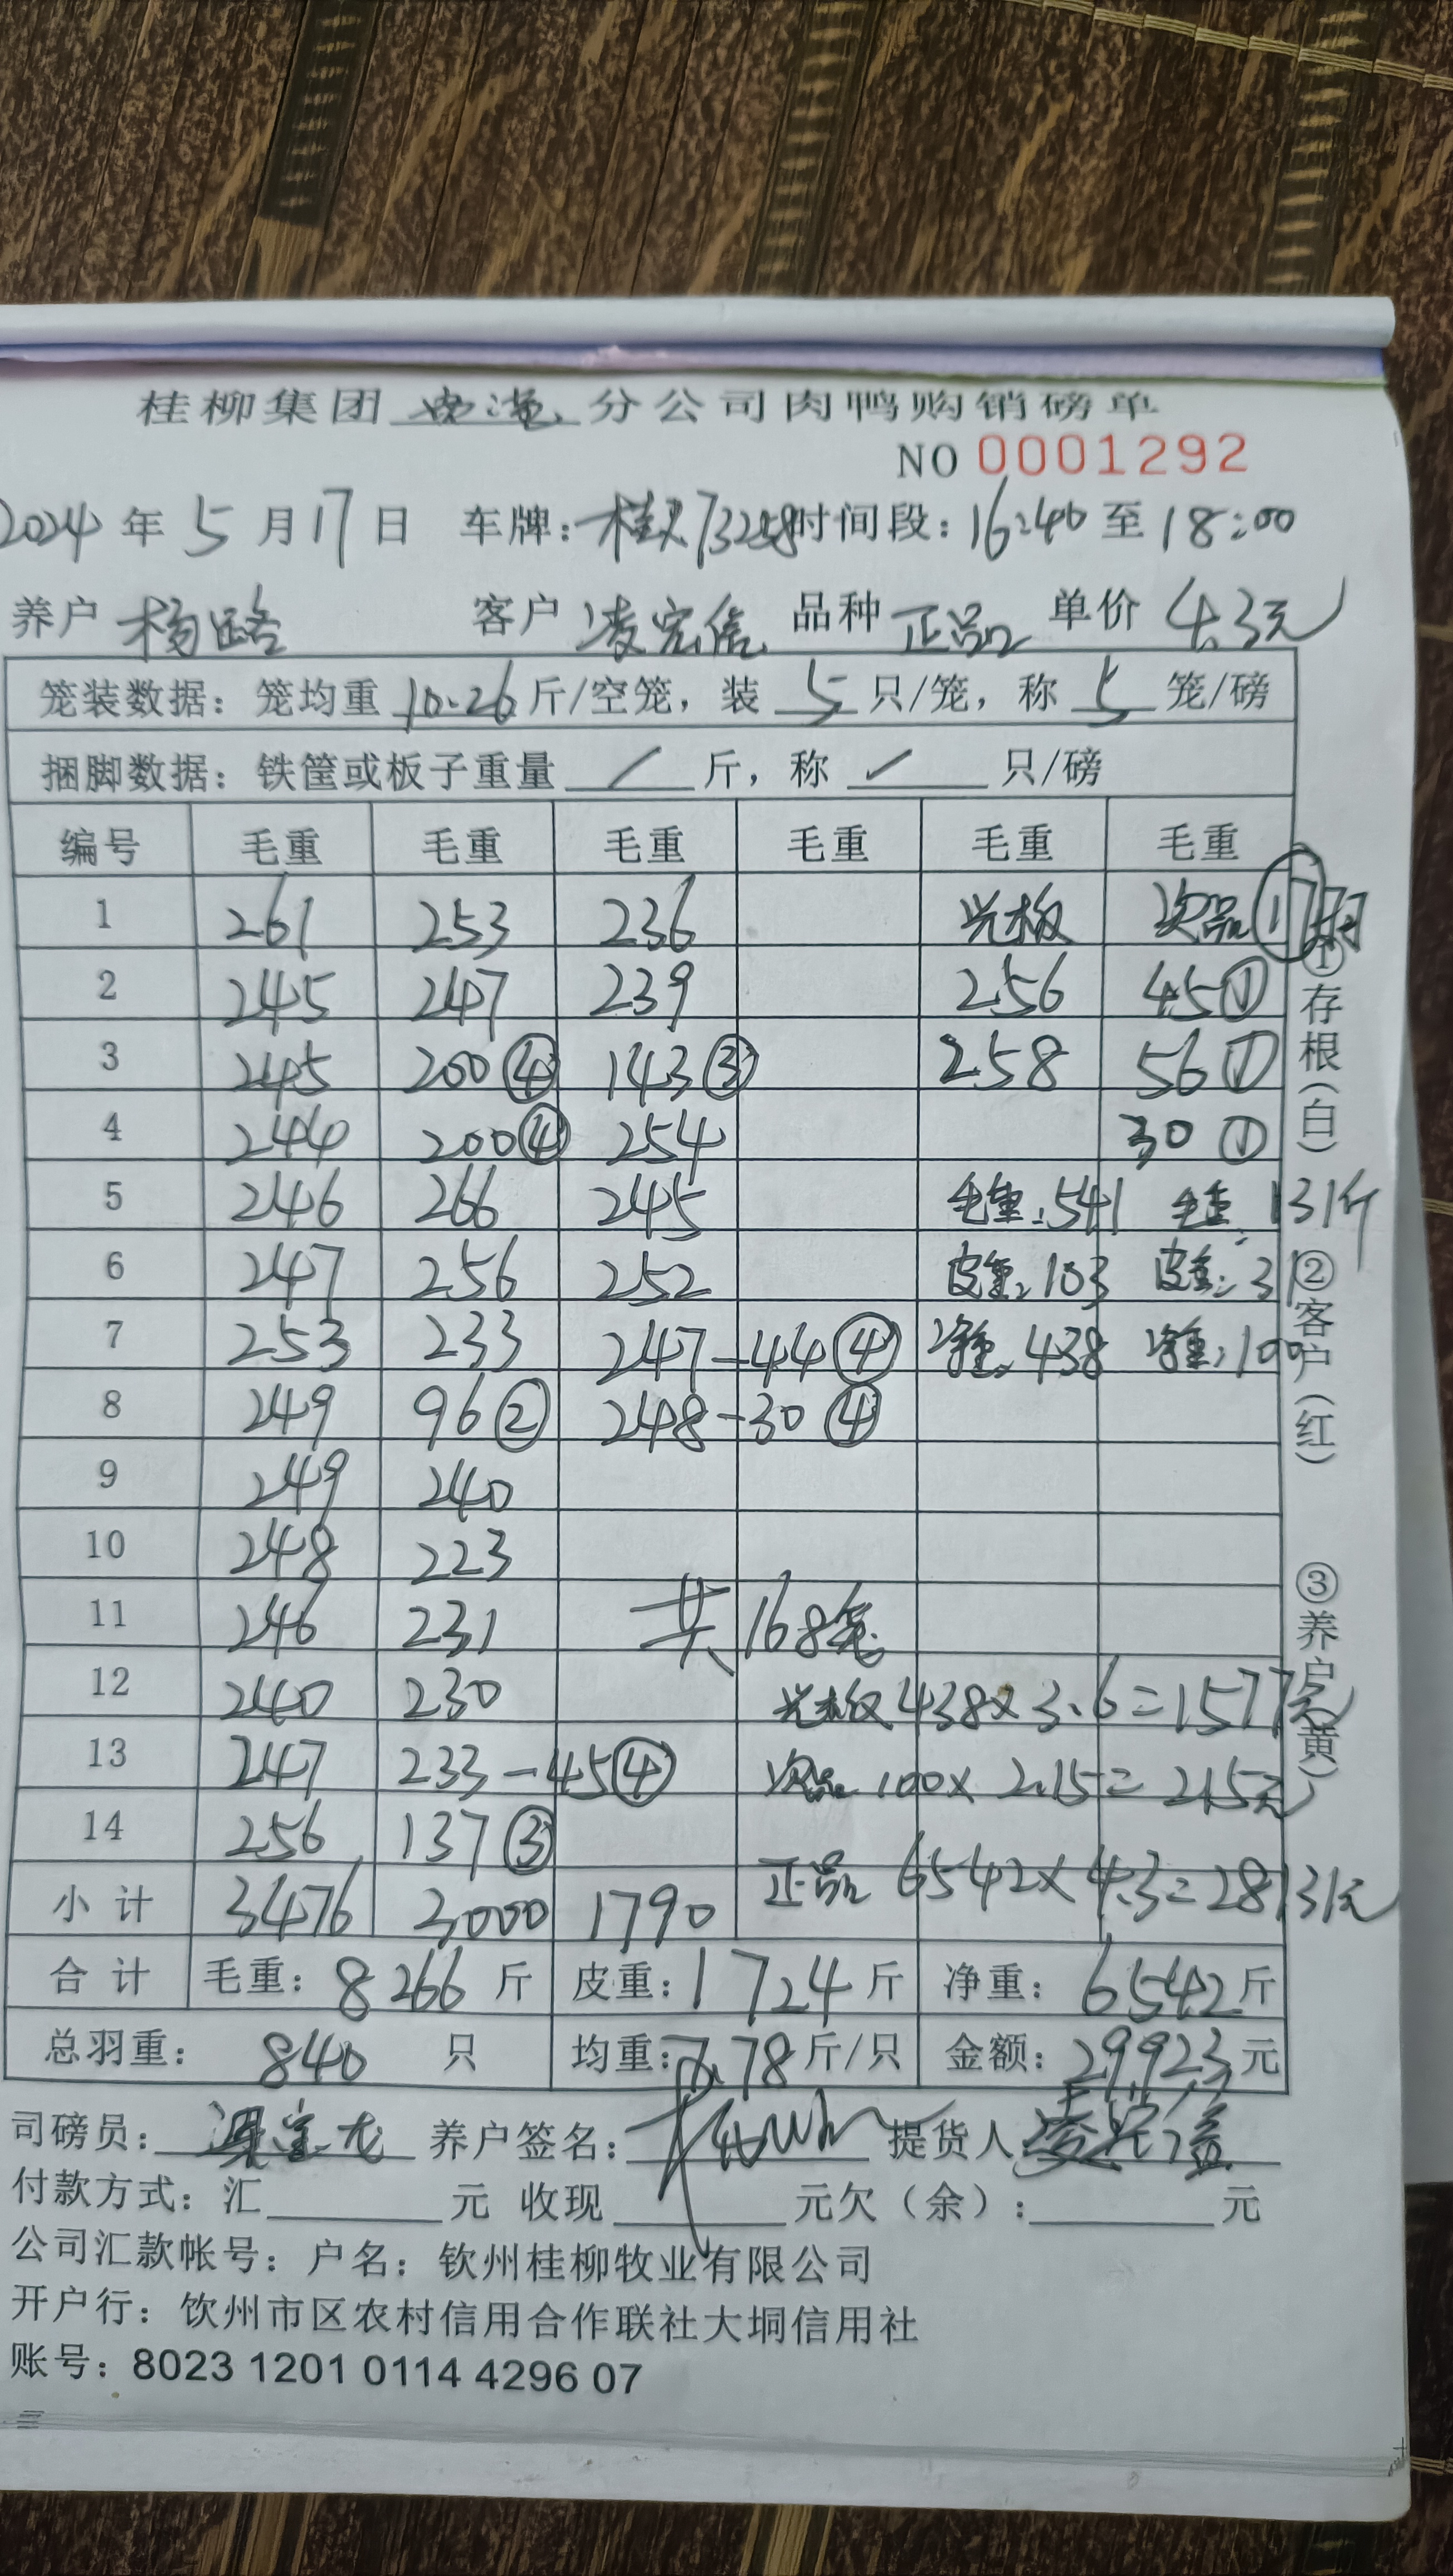 桂柳集团 分公司肉鸭购销磅单
NO 0001292
2024 年 5 月 17 日 车牌: 桂 73258 时间段: 16:40 至 18:00
养户 杨路 客户 凌宏信 品种 正品 单价 4.3元
笼装数据: 笼均重 10.26 斤/空笼, 装 5 只/笼, 称 5 笼/磅
捆脚数据: 铁筐或板子重量 / 斤, 称 ✓ 只/磅
编号 毛重 毛重 毛重 毛重 毛重 毛重
1 261 253 236 光板 次品 ①
2 245 247 239 256 45①
3 245 200④ 143③ 258 56①
4 244 200④ 254 30①
5 246 266 245 毛重:541 毛重:131斤
6 247 256 252 皮重:103 皮重:31
7 253 233 247-44④ 净重:438 净重:100
8 249 96② 248-30④
9 249 240
10 248 223
11 246 231 共168笼
12 240 230 光板 438×3.6=1577元
13 247 233-45④ 次品 100×2.15=215元
14 256 137③
小计 3476 3000 1790 正品 6542×4.3=28131元
合计 毛重: 8266 斤 皮重: 1724 斤 净重: 6542 斤
总羽重: 840 只 均重: 7.78 斤/只 金额: 29923 元
司磅员: 养户签名: 提货人
付款方式: 汇 元 收现 元欠(余): 元
公司汇款帐号: 户名: 钦州桂柳牧业有限公司
开户行: 饮州市区农村信用合作联社大垌信用社
账号: 8023 1201 0114 4296 07
①存根(白) ②客户(红) ③养户(黄)